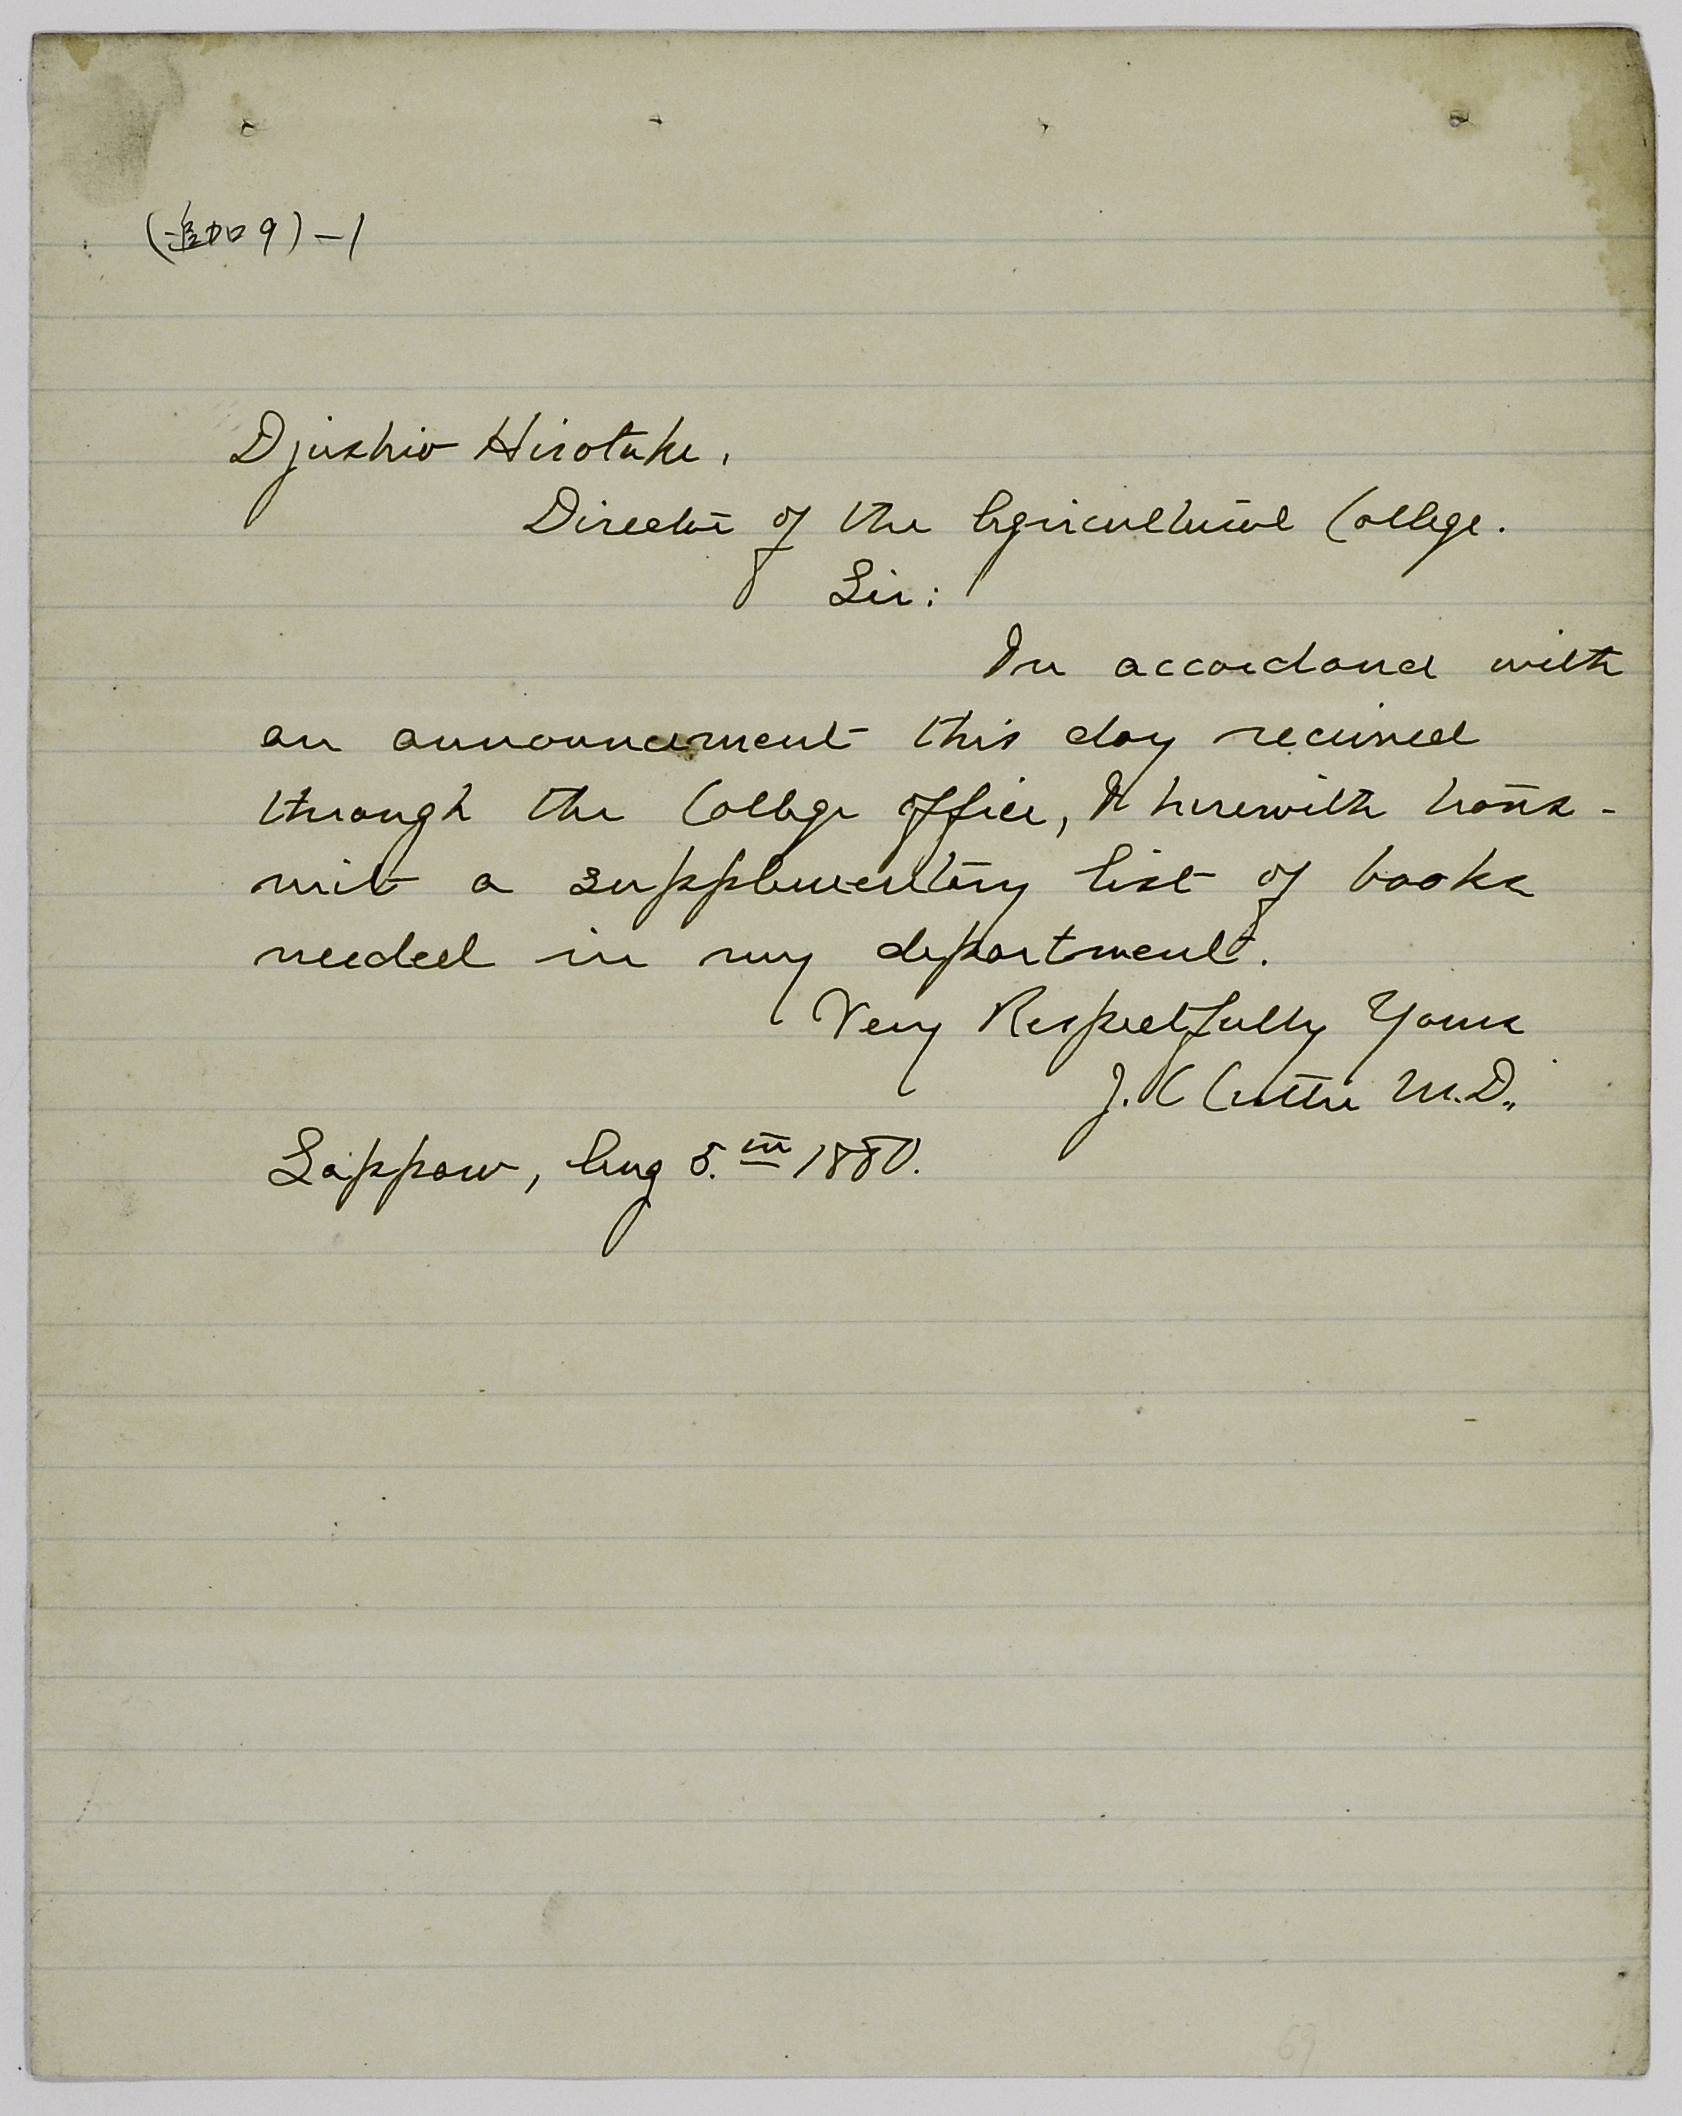 (追加9)-1
Djushio Hirotake,
Director of the Agricultural College.
Sir:
In accordance with
an announcement this day received
through the College Office, I herewith trans-
mit a supplementary list of books
needed in my department.
Very Respectfully Yours
J. C. Cutter M.D.,
Sapporo, Aug 5.th 1880.
69